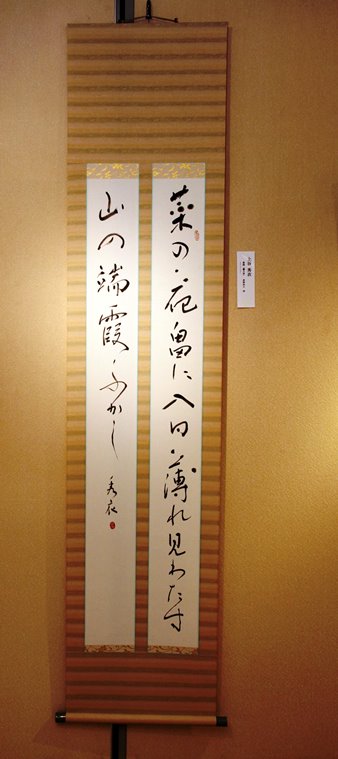 菜の花畠に入日薄れ見わたす
山の端霞ふかし
秀衣